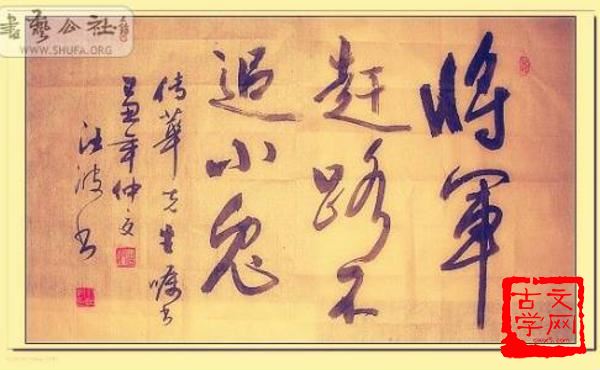 書藝公社
WWW.SHUFA.ORG
將軍
趕路不
追小兔
傳華先生嘱书
年仲夏
汪波书
古文
学网